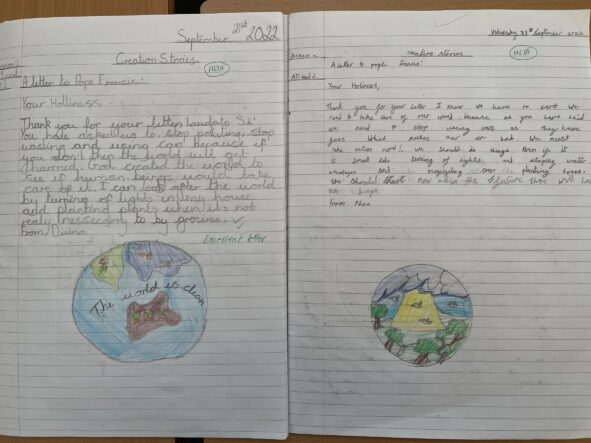 September 21st 2022
Creation Stories
HLTA
A letter to Pope Francis:
Your Holliness,
Thank you for your letter, Laudato Si'
You have asked us to stop polluting, stop
wasting and using cars because if
you don't then the world will get
harmed. God created the world to
see if human beings would take
care of it. I can look after the world
by turning of lights in my house
and planting plants when it's not
realy nessecary to by grocries.
from Divina
Excellent letter
The world is clean
Wednesday 21st September 2022
creative stories
HLTA
A letter to pope
Your Holiness,
Thank you for your letter I now we have to start We
need to take care of our world because as you have said
we need to stop using cars as they have
gases Which makes our air bad. We must
take action now! We should do things even if it
is small like turning of lights, and stoping water
and by recycling even planting trees.
We should start now
from